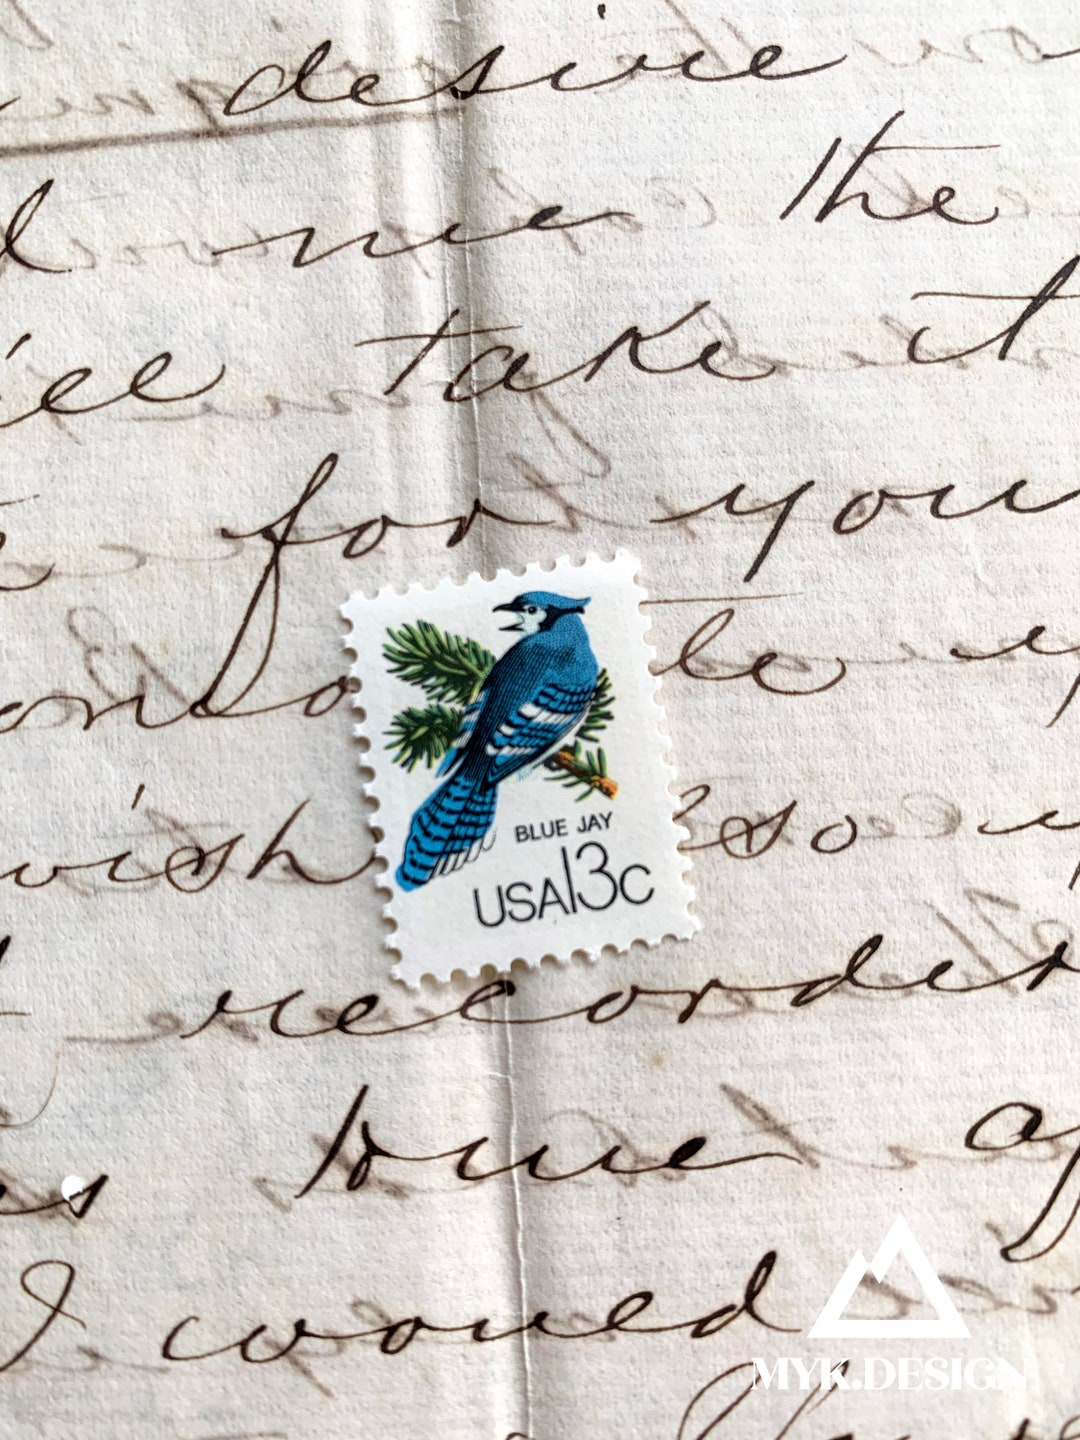 desire
me the
take it
for you
le
wish so
BLUE JAY
USA 13c
recorder
true
I would
MYK.DESIGN